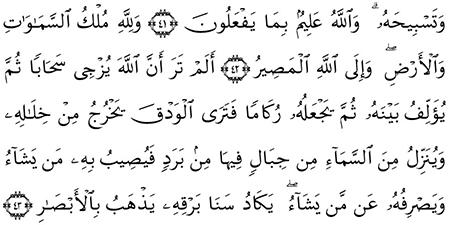 وَتَسْبِيحَهُۥ ۗ وَٱللَّهُ عَلِيمٌۢ بِمَا يَفْعَلُونَ ﴿٤١﴾ وَلِلَّهِ مُلْكُ ٱلسَّمَٰوَٰتِ
وَٱلْأَرْضِ ۖ وَإِلَى ٱللَّهِ ٱلْمَصِيرُ ﴿٤٢﴾ أَلَمْ تَرَ أَنَّ ٱللَّهَ يُزْجِى سَحَابًا ثُمَّ
يُؤَلِّفُ بَيْنَهُۥ ثُمَّ يَجْعَلُهُۥ رُكَامًا فَتَرَى ٱلْوَدْقَ يَخْرُجُ مِنْ خِلَٰلِهِۦ
وَيُنَزِّلُ مِنَ ٱلسَّمَآءِ مِن جِبَالٍ فِيهَا مِنۢ بَرَدٍ فَيُصِيبُ بِهِۦ مَن يَشَآءُ
وَيَصْرِفُهُۥ عَن مَّن يَشَآءُ ۖ يَكَادُ سَنَا بَرْقِهِۦ يَذْهَبُ بِٱلْأَبْصَٰرِ ﴿٤٣﴾